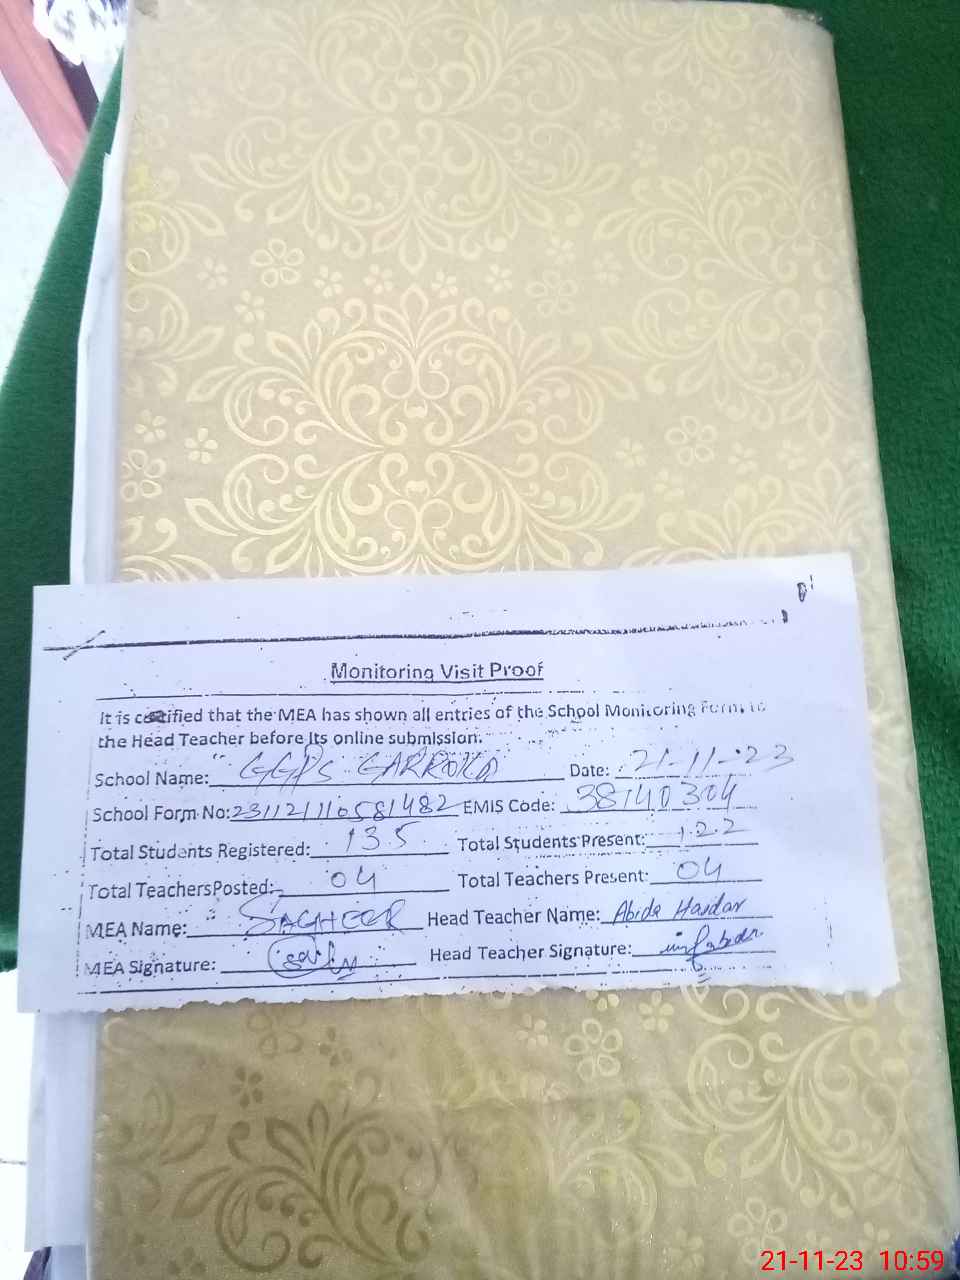 Monitoring Visit Proof
It is certified that the MEA has shown all entries of the School Monitoring Form to
the Head Teacher before its online submission.
School Name: GGPS GARROKA Date: 21-11-23
School Form No: 231121110581482 EMIS Code: 38140304
Total Students Registered: 135 Total Students Present: 122
Total TeachersPosted: 04 Total Teachers Present: 04
MEA Name: SAGHEER Head Teacher Name: Abida Haidar
MEA Signature: Head Teacher Signature:
21-11-23 10:59